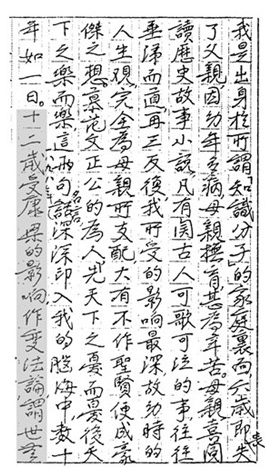 我是出身於所謂「知識分子」的家庭裏面六歲即失
了父親因幼年多病母親撫育甚為辛苦母親喜閱
讀歷史故事小說凡有關古人可歌可泣的事往往
垂涕而道再三反復我所受的影响最深故幼時的
人生观完全為母親所支配大有不作聖賢便成豪
傑之想慕范文正公的為人「先天下之憂而憂後天
下之樂而樂」這兩句名言深深印入我的腦海中數十
年如一日。十二歲受康梁的影响作變法論謂世